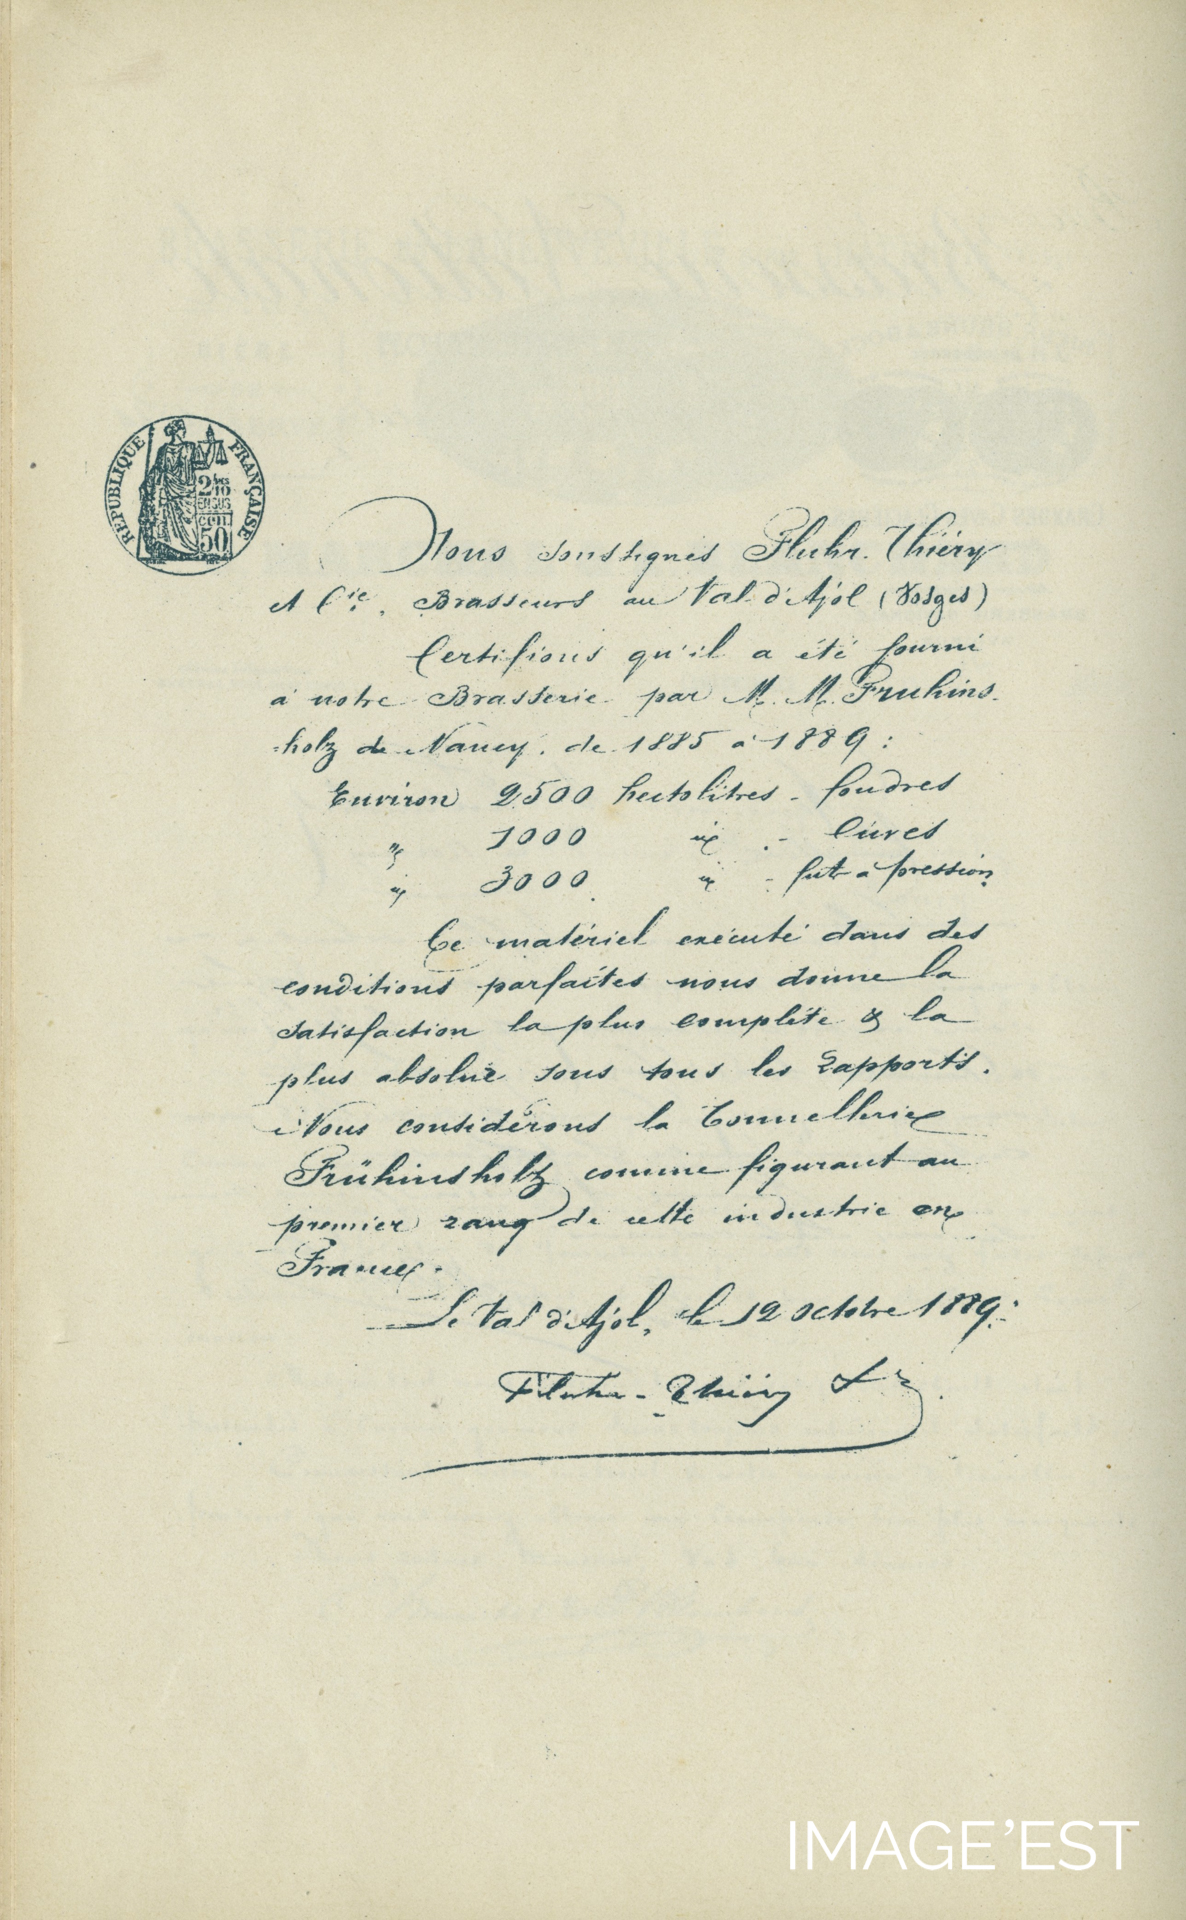 RÉPUBLIQUE FRANÇAISE
2/10
EN SUS
50
Nous soussignés Fluhr. Thiéry
et Cie, Brasseurs au Val d'Ajol (Vosges)
Certifions qu'il a été fourni
à notre Brasserie par M. M. Fruhins-
-holz de Nancy. de 1885 à 1889 :
Environ 2500 hectolitres - foudres
" 1000 " - Cuves
" 3000 " - fûts à pression
Ce matériel exécuté dans des
conditions parfaites nous donne la
satisfaction la plus complète & la
plus absolue sous tous les rapports.
Nous considérons la Tonnellerie
Frühinsholz comme figurant au
premier rang de cette industrie en
France.
Le Val d'Ajol, le 12 octobre 1889.
Fluhr - Thiéry
IMAGE'EST